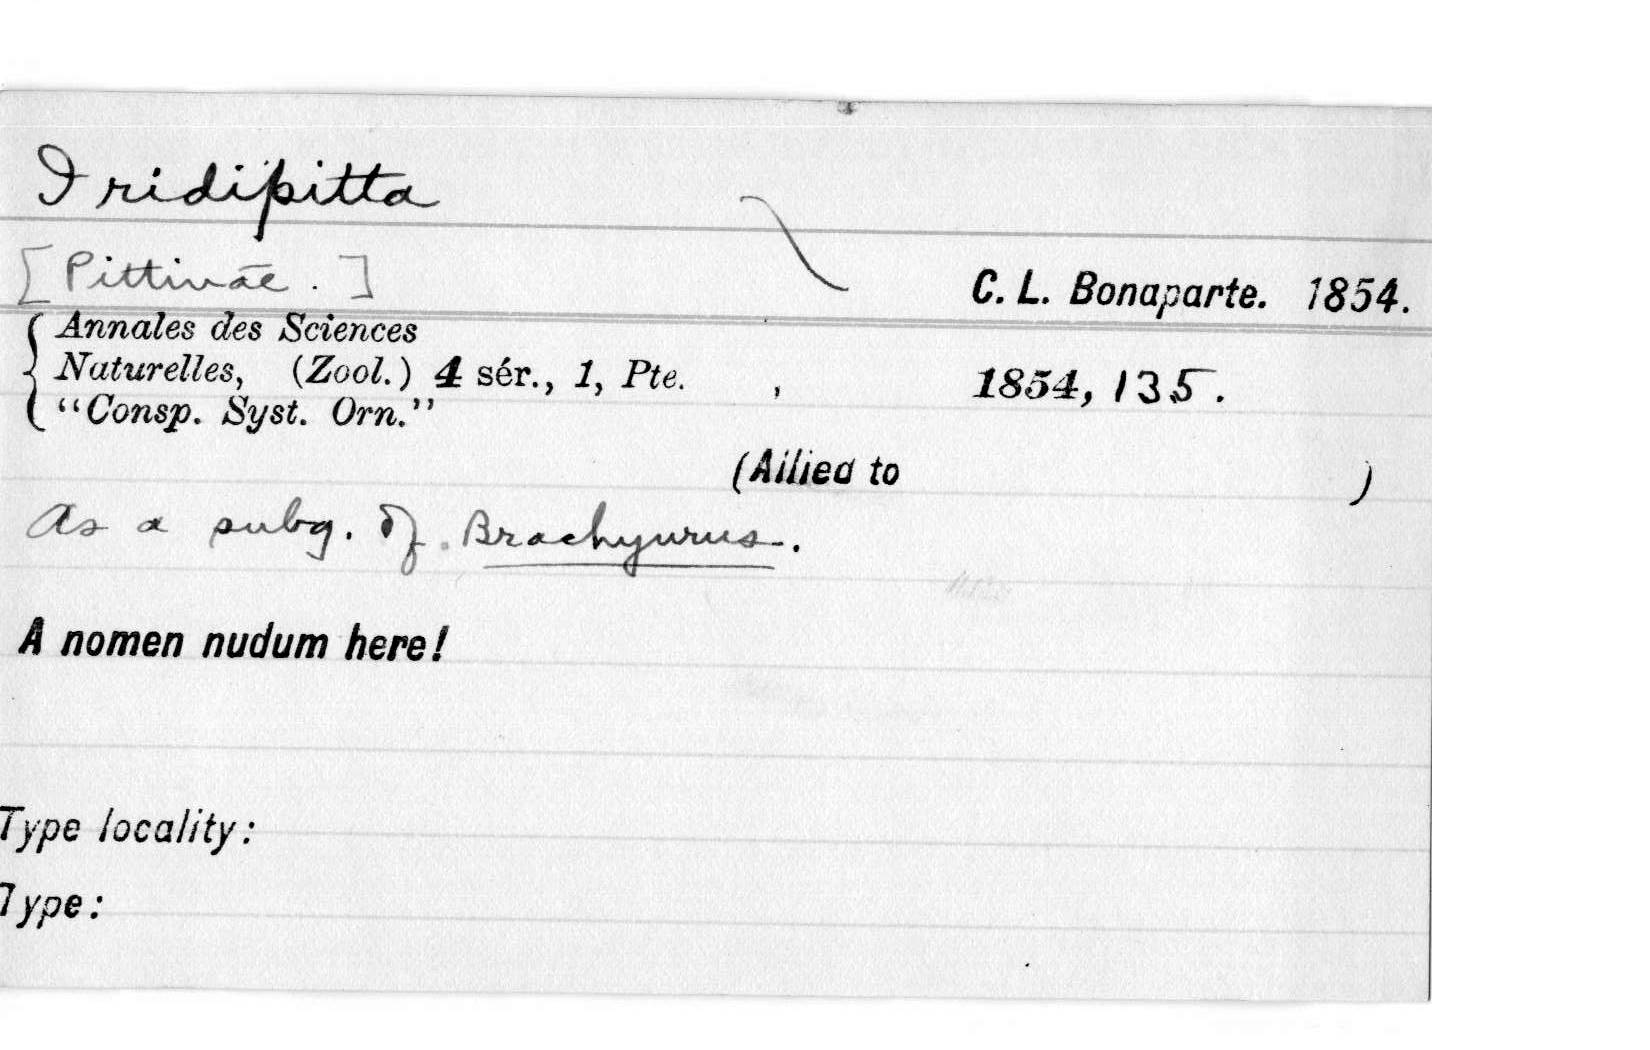 Iridipitta
[Pittinae.]
C. L. Bonaparte. 1854.
Annales des Sciences
Naturelles, (Zool.) 4 sér., 1, Pte. , 1854, 135.
"Consp. Syst. Orn."
(Allied to )
As a subg. of Brachyurus.
A nomen nudum here!
Type locality:
Type: